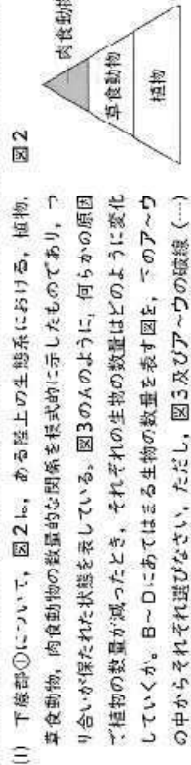 (1) 下線部①について，図2は，ある陸上の生態系における，植物，
草食動物，肉食動物の数量的な関係を模式的に示したものであり，つ
り合いが保たれた状態を表している。図3のAのように，何らかの原因
で植物の数量が減ったとき，それぞれの生物の数量はどのように変化
していくか。B～Dにあてはまる生物の数量を表す図を，下のア～ウ
の中からそれぞれ選びなさい。ただし，図3及びア～ウの破線（…）
図2
肉食動物
草食動物
植物